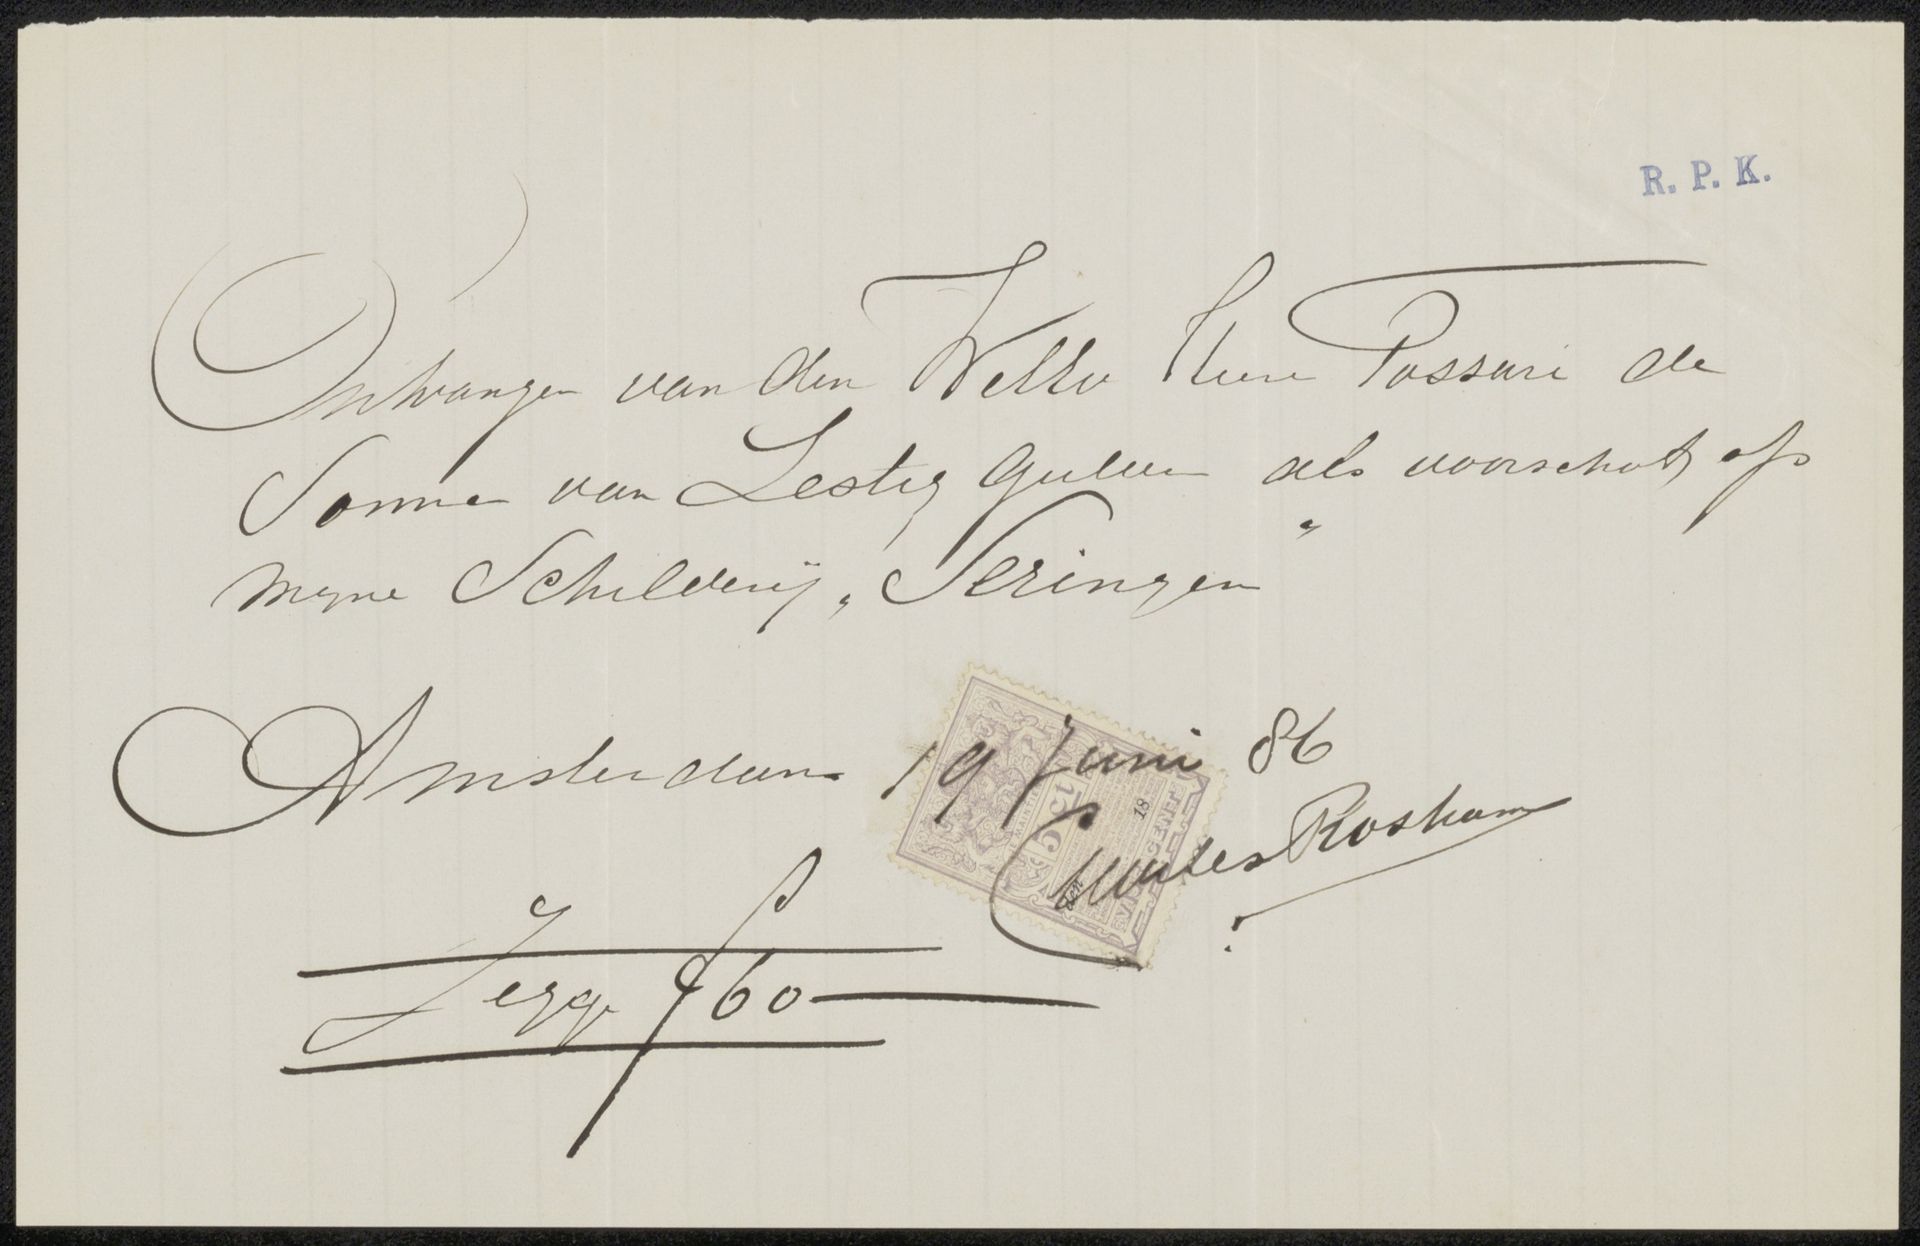 R. P. K.
Ontvangen van den Heer Possuri de
Somma van Zestig gulden als voorschot op
myne Schilderij „Seringen"
Amsterdam 19 Juni 86
5 ct
18
den
CENT
Charles Roskam
Zegge f 60